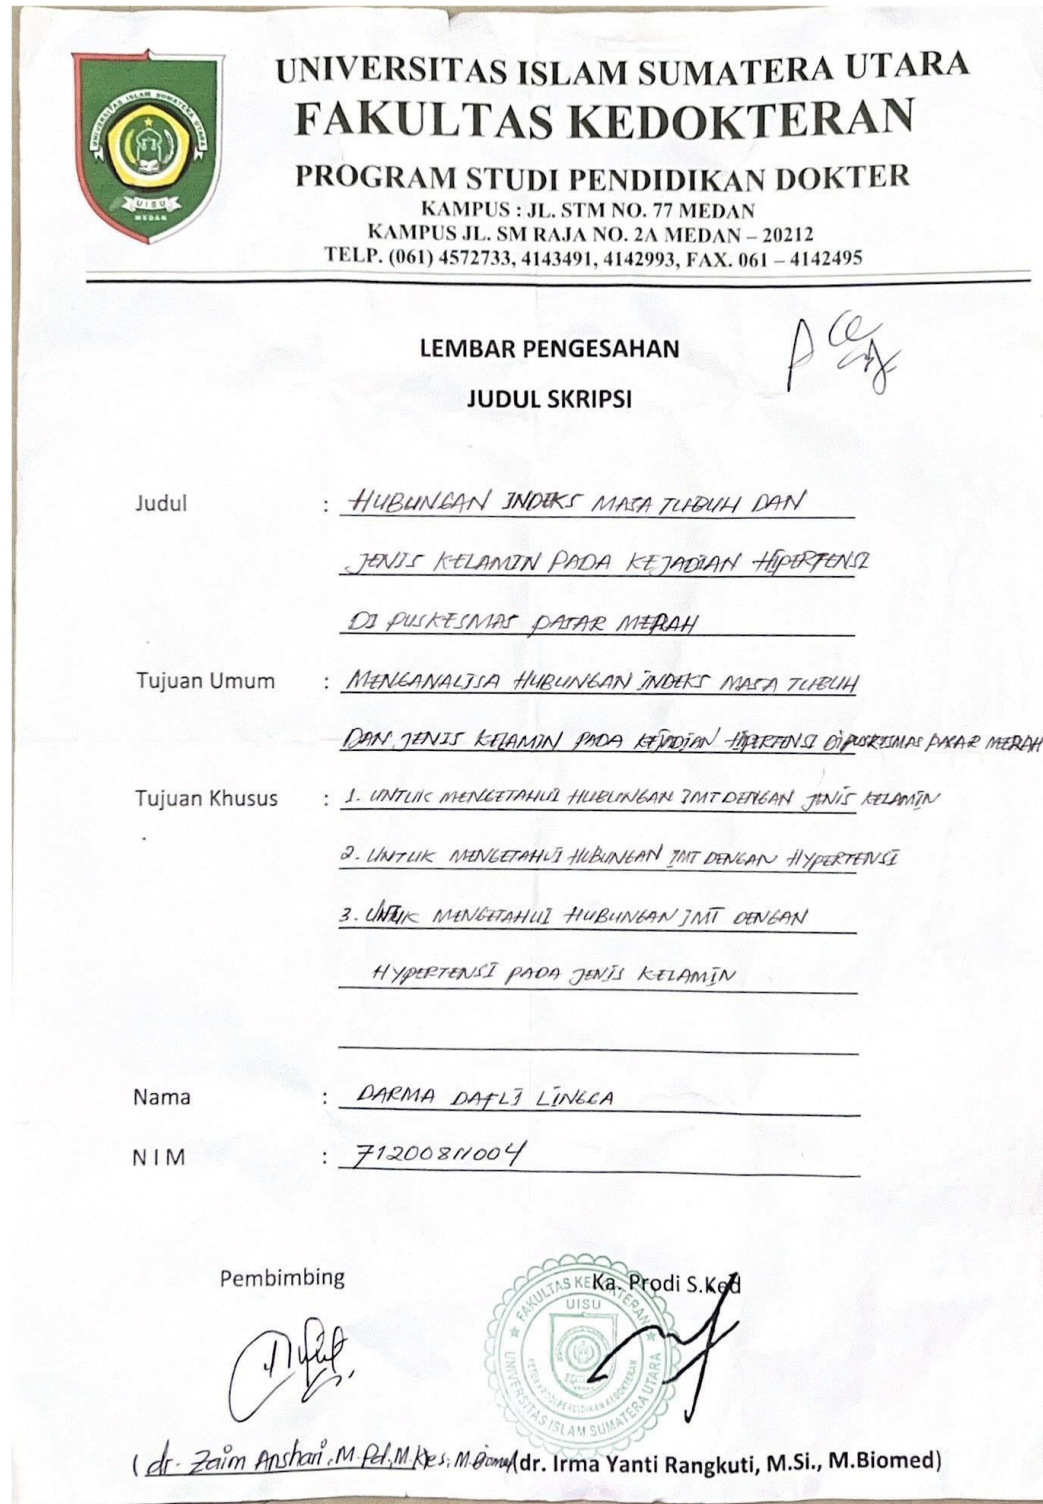 UNIVERSITAS ISLAM SUMATERA UTARA
UISU
MEDAN
UNIVERSITAS ISLAM SUMATERA UTARA
FAKULTAS KEDOKTERAN
PROGRAM STUDI PENDIDIKAN DOKTER
KAMPUS : JL. STM NO. 77 MEDAN
KAMPUS JL. SM RAJA NO. 2A MEDAN – 20212
TELP. (061) 4572733, 4143491, 4142993, FAX. 061 – 4142495
LEMBAR PENGESAHAN
JUDUL SKRIPSI
Acc
Judul : HUBUNGAN INDEKS MASA TUBUH DAN
JENIS KELAMIN PADA KEJADIAN HIPERTENSI
DI PUSKESMAS PASAR MERAH
Tujuan Umum : MENGANALISA HUBUNGAN INDEKS MASA TUBUH
DAN JENIS KELAMIN PADA KEJADIAN HIPERTENSI DI PUSKESMAS PASAR MERAH
Tujuan Khusus : 1. UNTUK MENGETAHUI HUBUNGAN IMT DENGAN JENIS KELAMIN
2. UNTUK MENGETAHUI HUBUNGAN IMT DENGAN HYPERTENSI
3. UNTUK MENGETAHUI HUBUNGAN IMT DENGAN
HYPERTENSI PADA JENIS KELAMIN
Nama : DARMA DAFLI LINGGA
N I M : 71200811004
Pembimbing Ka. Prodi S.Ked
FAKULTAS KEDOKTERAN
UISU
KETUA PRODI PENDIDIKAN KEDOKTERAN
UNIVERSITAS ISLAM SUMATERA UTARA
( dr. Zaim Anshari, M.Pd, M.Kes, M.Biomed (dr. Irma Yanti Rangkuti, M.Si., M.Biomed)